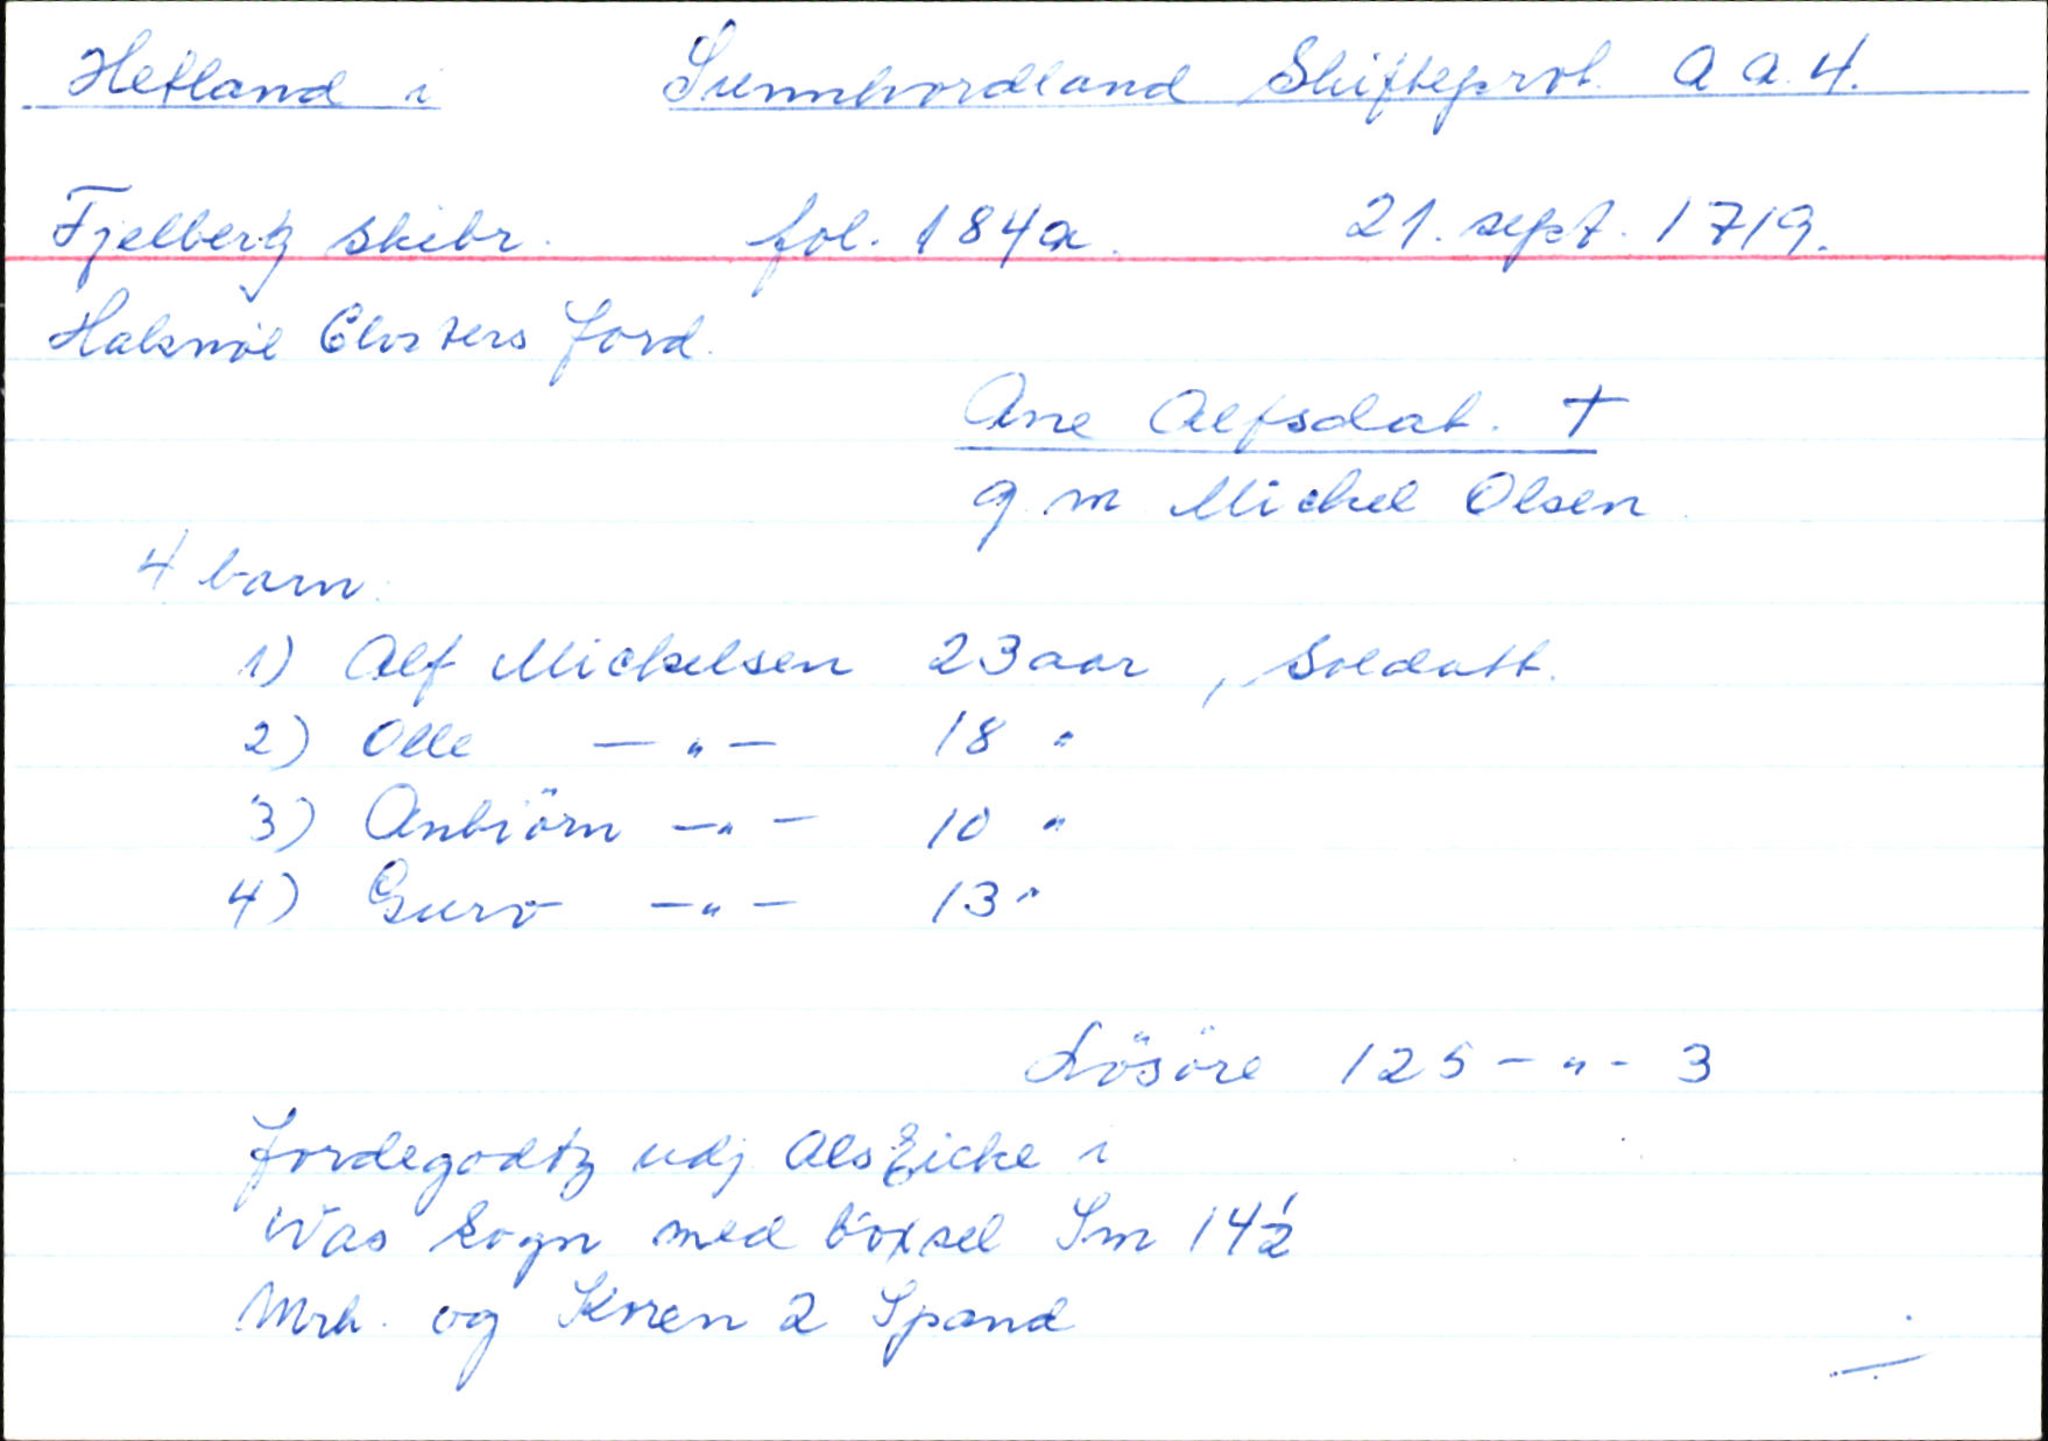 Hetland i Sunnhordland Skifteprot. A a 4.
Fjelberg skibr. fol. 184a. 21. sept. 1719.
Halsnöe Closters Jord.
Ane Alfsdat. †
g. m Michel Olsen
4 barn:
1) Alf Michelsen 23 aar, Soldatt.
2) Olle — " — 18 "
3) Anbiörn — " — 10 "
4) Guro — " — 13 "
Lösöre 125 - " - 3
Jordegodtz udj Als Eicke i
Was Sogn med böxsel Sm 14 1/2
Mrk. og Koren 2 Spand